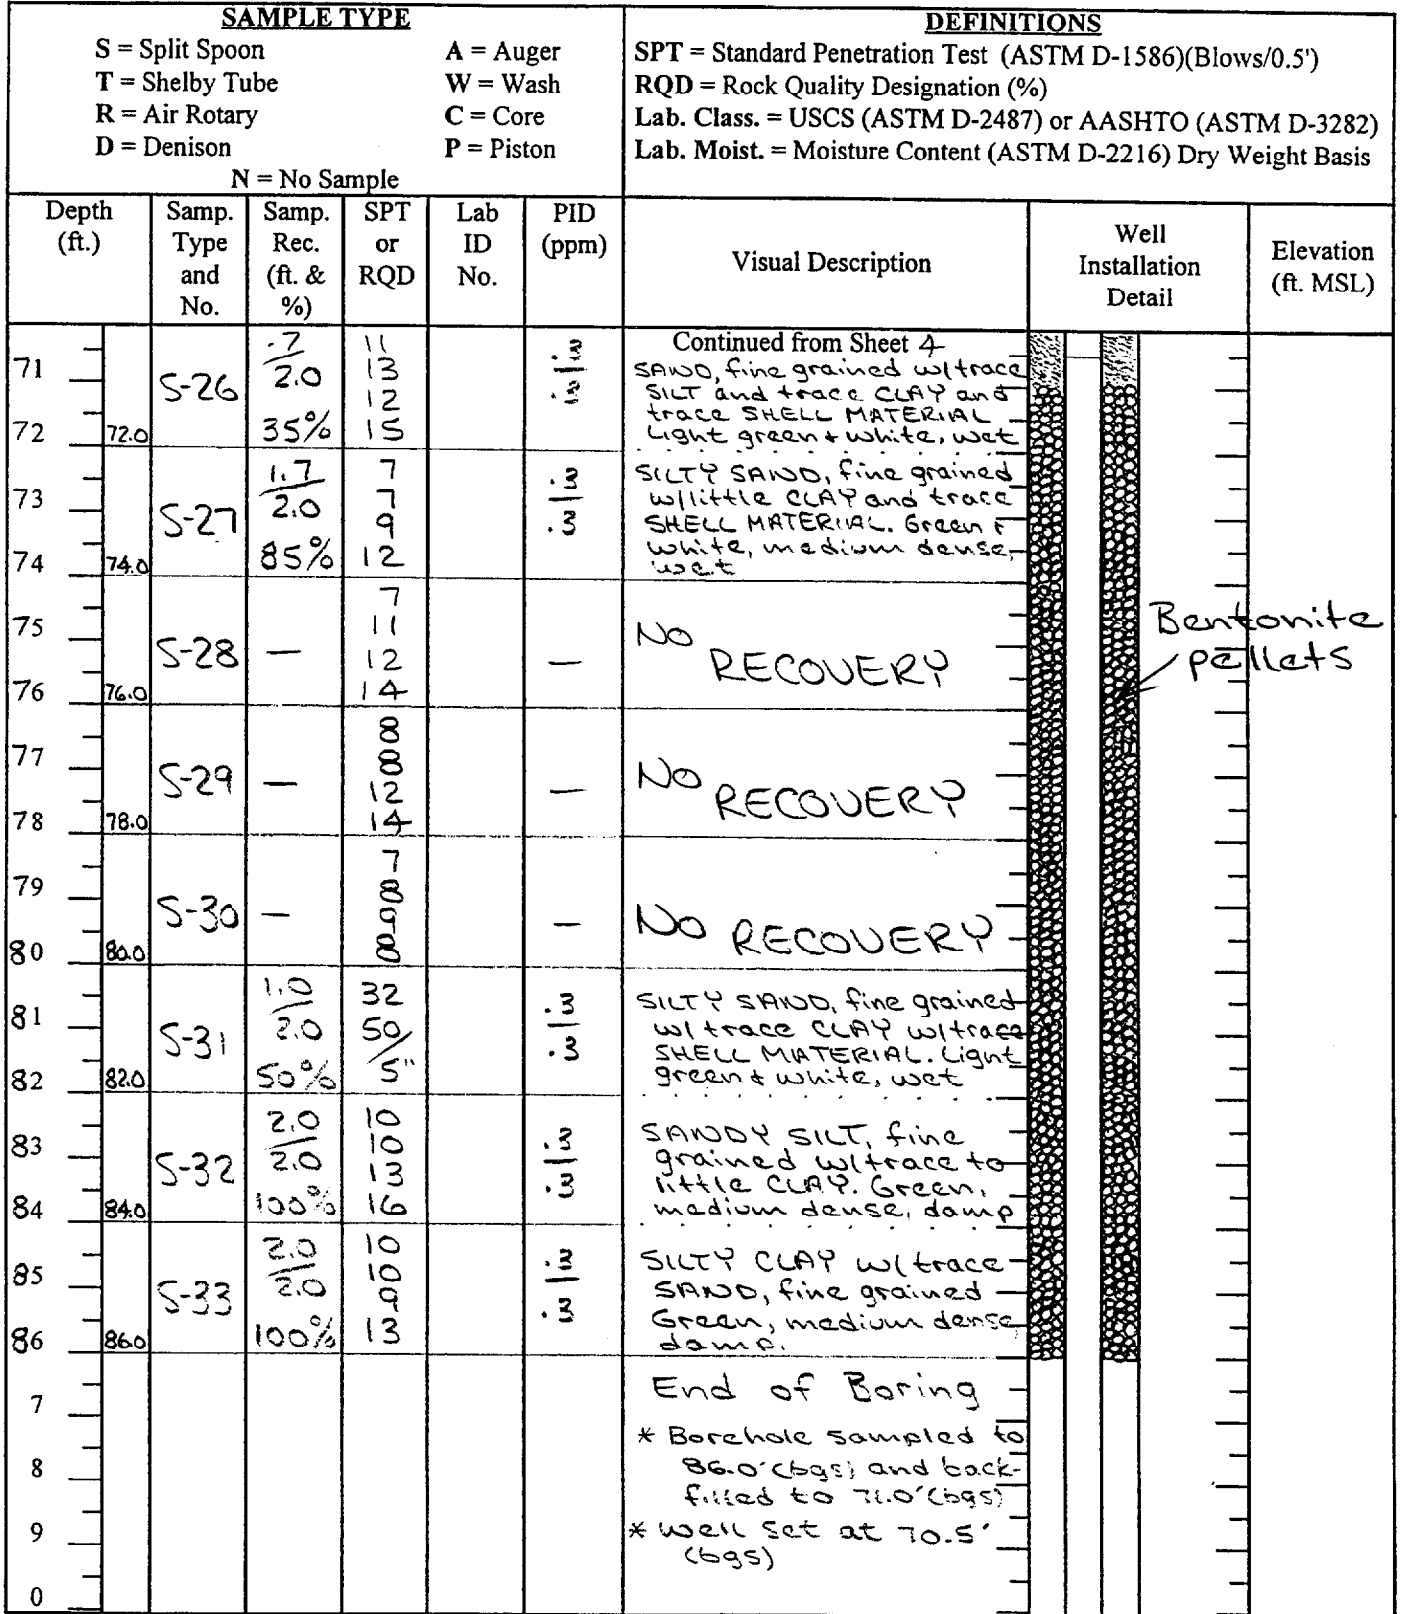 SAMPLE TYPE
S = Split Spoon A = Auger
T = Shelby Tube W = Wash
R = Air Rotary C = Core
D = Denison P = Piston
N = No Sample
DEFINITIONS
SPT = Standard Penetration Test (ASTM D-1586)(Blows/0.5')
RQD = Rock Quality Designation (%)
Lab. Class. = USCS (ASTM D-2487) or AASHTO (ASTM D-3282)
Lab. Moist. = Moisture Content (ASTM D-2216) Dry Weight Basis
Depth
(ft.)
Samp.
Type
and
No.
Samp.
Rec.
(ft. &
%)
SPT
or
RQD
Lab
ID
No.
PID
(ppm)
Visual Description
Well
Installation
Detail
Elevation
(ft. MSL)
71
72
72.0
S-26
.7
2.0
35%
11
13
12
15
.3
.3
Continued from Sheet 4
SAND, fine grained w/trace
SILT and trace CLAY and
trace SHELL MATERIAL
Light green & white, wet
73
74
74.0
S-27
1.7
2.0
85%
7
7
9
12
.3
.3
SILTY SAND, fine grained
w/little CLAY and trace
SHELL MATERIAL. Green &
white, medium dense,
wet
75
76
76.0
S-28
—
7
11
12
14
—
NO
RECOVERY
Bentonite
pellets
77
78
78.0
S-29
—
8
8
12
14
—
NO
RECOVERY
79
80
80.0
S-30
—
7
8
9
8
—
NO RECOVERY
81
82
82.0
S-31
1.0
2.0
50%
32
50/
5"
.3
.3
SILTY SAND, fine grained
w/trace CLAY w/trace
SHELL MATERIAL. Light
green & white, wet
83
84
84.0
S-32
2.0
2.0
100%
10
10
13
16
.3
.3
SANDY SILT, fine
grained w/trace to
little CLAY. Green,
medium dense, damp
85
86
86.0
S-33
2.0
2.0
100%
10
10
9
13
.3
.3
SILTY CLAY w/trace
SAND, fine grained
Green, medium dense,
damp.
7
8
9
0
End of Boring
* Borehole sampled to
86.0'(bgs) and back-
filled to 71.0'(bgs)
* Well set at 70.5'
(bgs)